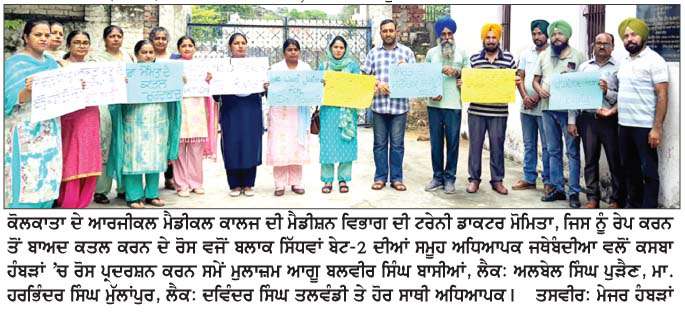 ਕੋਲਕਾਤਾ ਦੇ ਆਰਜੀਕਲ ਮੈਡੀਕਲ ਕਾਲਜ ਦੀ ਮੈਡੀਸ਼ਨ ਵਿਭਾਗ ਦੀ ਟਰੇਨੀ ਡਾਕਟਰ ਮੋਮਿਤਾ, ਜਿਸ ਨੂੰ ਰੇਪ ਕਰਨ
ਤੋਂ ਬਾਅਦ ਕਤਲ ਕਰਨ ਦੇ ਰੋਸ ਵਜੋਂ ਬਲਾਕ ਸਿੱਧਵਾਂ ਬੇਟ-2 ਦੀਆਂ ਸਮੂਹ ਅਧਿਆਪਕ ਜਥੇਬੰਦੀਆ ਵਲੋਂ ਕਸਬਾ
ਹੰਬੜਾਂ ’ਚ ਰੋਸ ਪ੍ਰਦਰਸ਼ਨ ਕਰਨ ਸਮੇਂ ਮੁਲਾਜ਼ਮ ਆਗੂ ਬਲਵੀਰ ਸਿੰਘ ਬਾਸੀਆਂ, ਲੈਕ: ਅਲਬੇਲ ਸਿੰਘ ਪੁੜੈਣ, ਮਾ.
ਹਰਭਿੰਦਰ ਸਿੰਘ ਮੁੱਲਾਂਪੁਰ, ਲੈਕ: ਦਵਿੰਦਰ ਸਿੰਘ ਤਲਵੰਡੀ ਤੇ ਹੋਰ ਸਾਥੀ ਅਧਿਆਪਕ। ਤਸਵੀਰ: ਮੇਜਰ ਹੰਬੜਾਂ